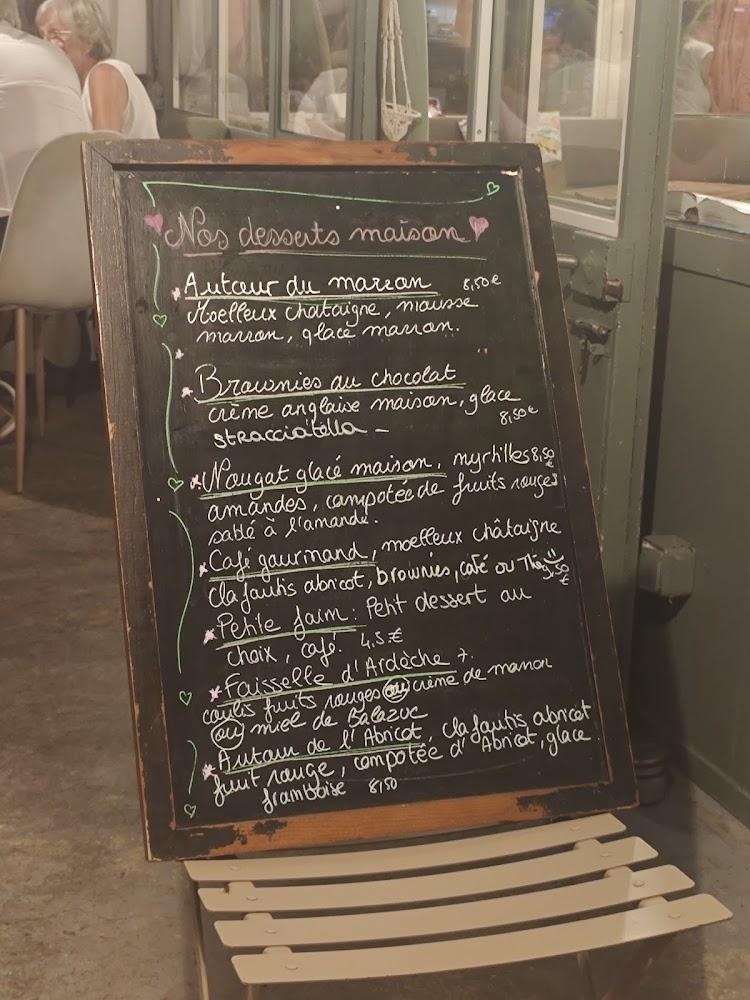 Nos desserts maison
Autour du marron 8,50€
Moelleux chataigne, mousse
marron, glace marron.
Brownies au chocolat
crème anglaise maison, glace
stracciatella - 8,50€
Nougat glacé maison, myrtilles 8,50€
amandes, compotée de fruits rouges
sablé à l'amande.
Café gourmand, moelleux châtaigne
Clafoutis abricot, brownies, café ou Thé 9,50€
Petite faim : Petit dessert au
choix, café. 4,5€
Faisselle d'Ardèche 7.
coulis fruits rouges ou crème de marron
ou miel de Balazuc
Autour de l'Abricot, Clafoutis abricot
fruit rouge, compotée d'Abricot, glace
framboise 8,50